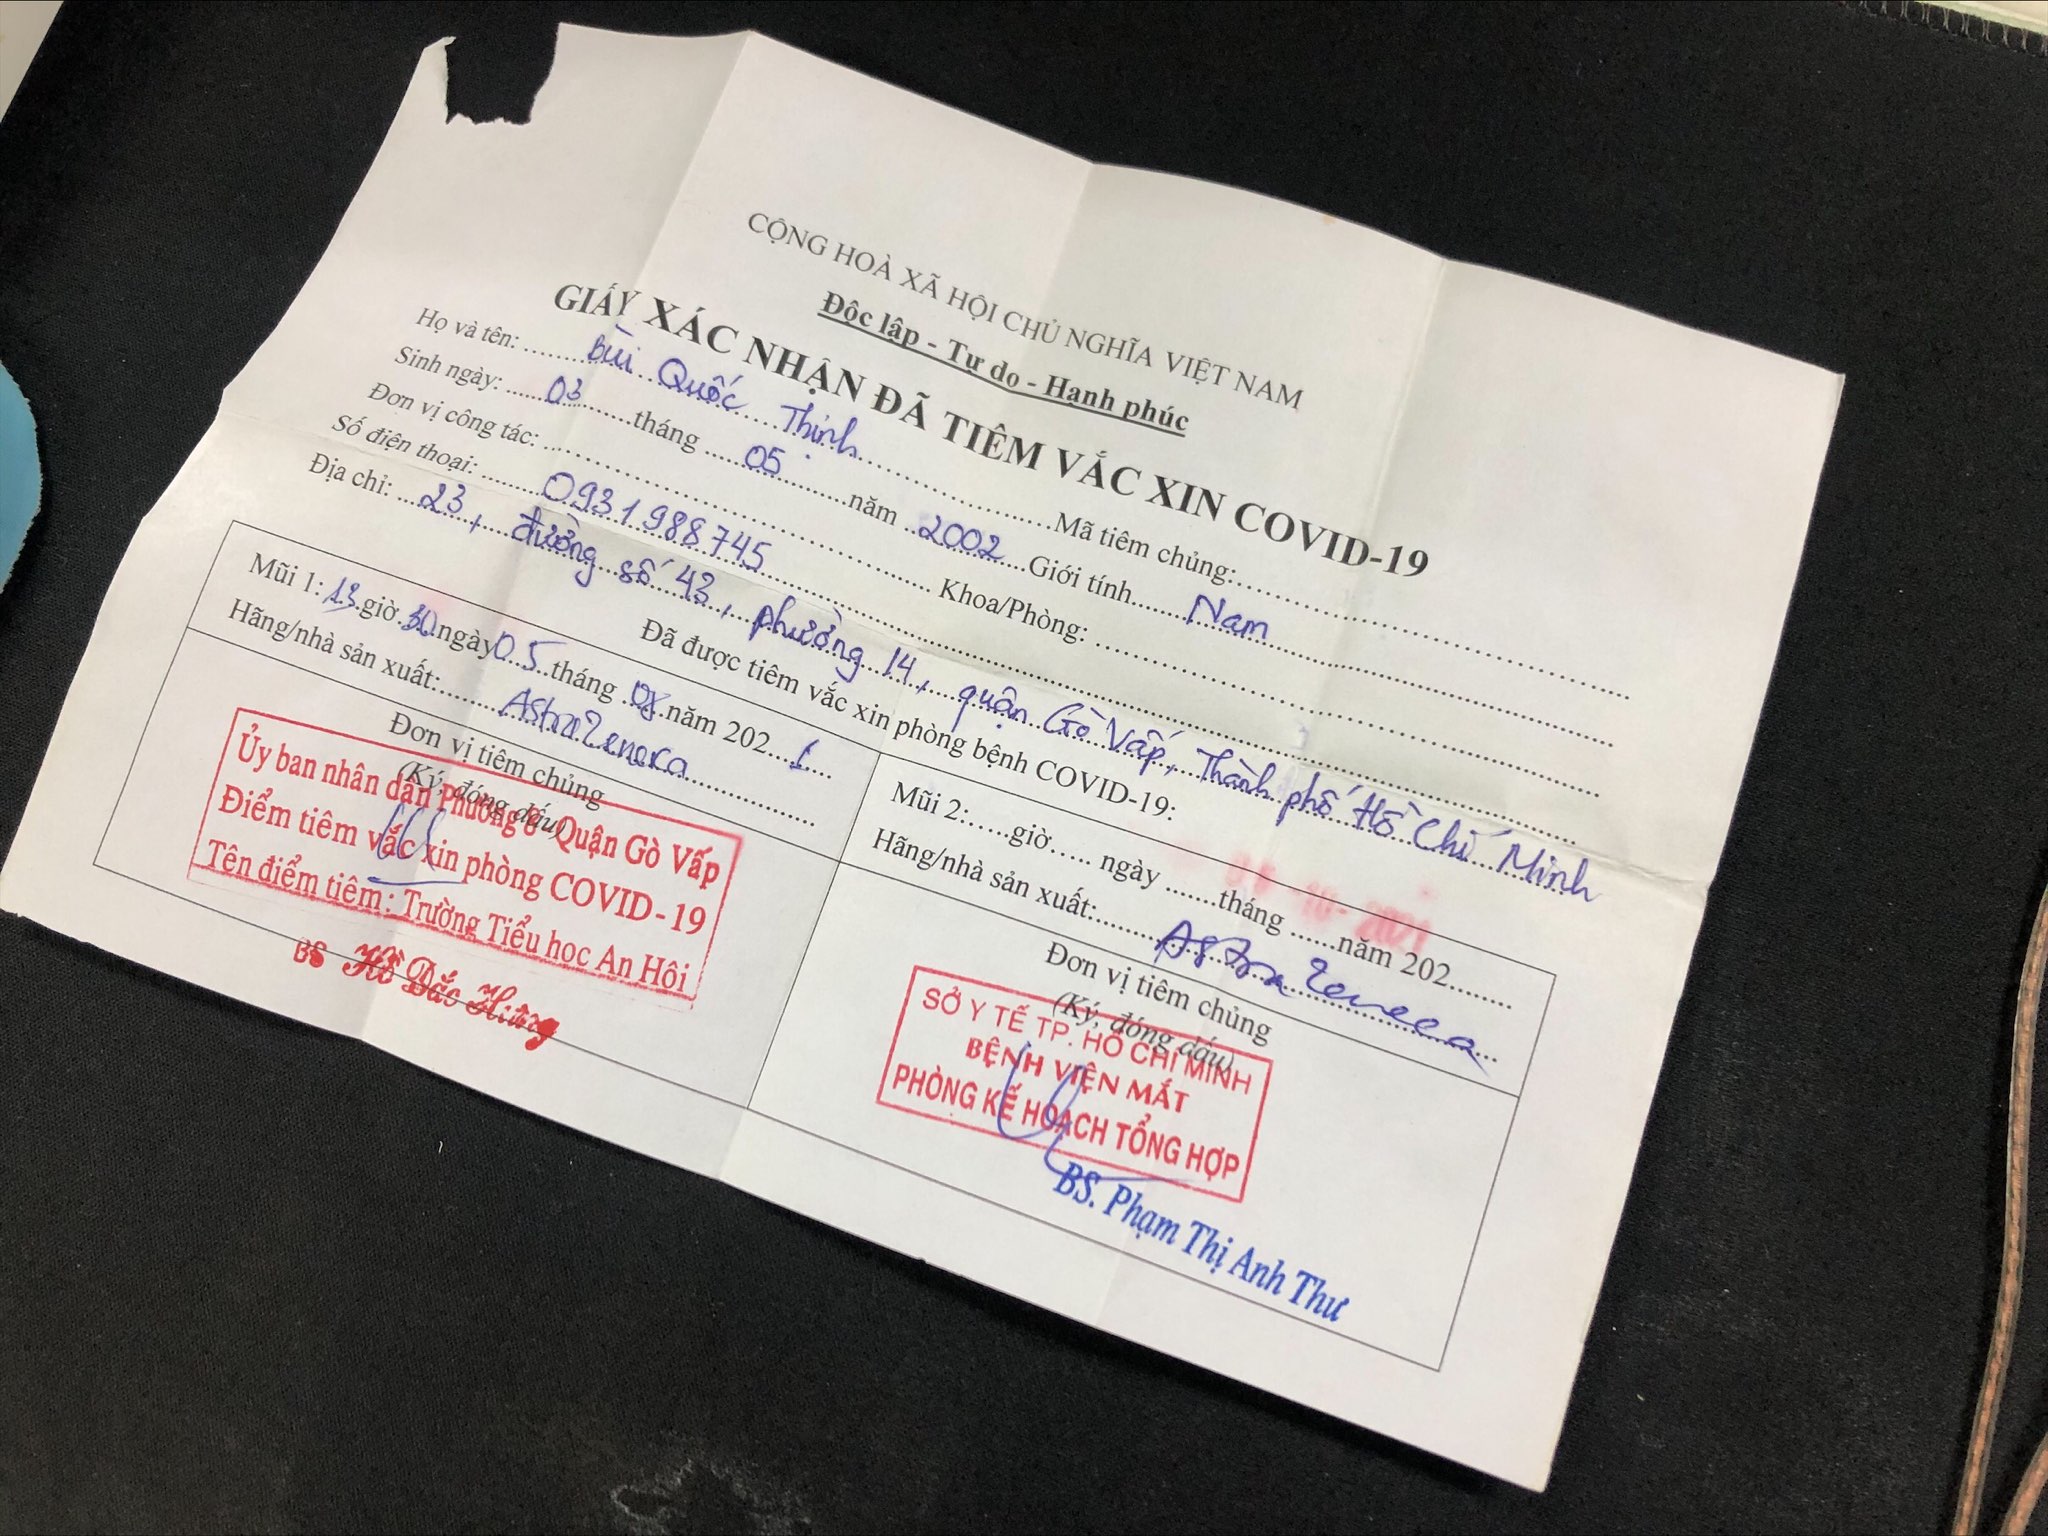 CỘNG HOÀ XÃ HỘI CHỦ NGHĨA VIỆT NAM
Độc lập - Tự do - Hạnh phúc
GIẤY XÁC NHẬN ĐÃ TIÊM VẮC XIN COVID-19
Họ và tên: Bùi Quốc Thịnh Mã tiêm chủng:
Sinh ngày: 03 tháng 05 năm 2002 Giới tính Nam
Đơn vị công tác: Khoa/Phòng:
Số điện thoại: 0931988745
Địa chỉ: 23, đường số 43, phường 14, quận Gò Vấp, Thành phố Hồ Chí Minh
Đã được tiêm vắc xin phòng bệnh COVID-19:
Mũi 1: 13 giờ 30 ngày 05 tháng 08 năm 2021
Hãng/nhà sản xuất: AstraZeneca
Đơn vị tiêm chủng
(Ký, đóng dấu)
Ủy ban nhân dân Phường 8 Quận Gò Vấp
Điểm tiêm vắc xin phòng COVID-19
Tên điểm tiêm: Trường Tiểu học An Hội
BS Hồ Đắc Hưng
Mũi 2: giờ ngày tháng năm 202
10-2021
Hãng/nhà sản xuất: AstraZeneca
Đơn vị tiêm chủng
(Ký, đóng dấu)
SỞ Y TẾ TP. HỒ CHÍ MINH
BỆNH VIỆN MẮT
PHÒNG KẾ HOẠCH TỔNG HỢP
BS. Phạm Thị Anh Thư